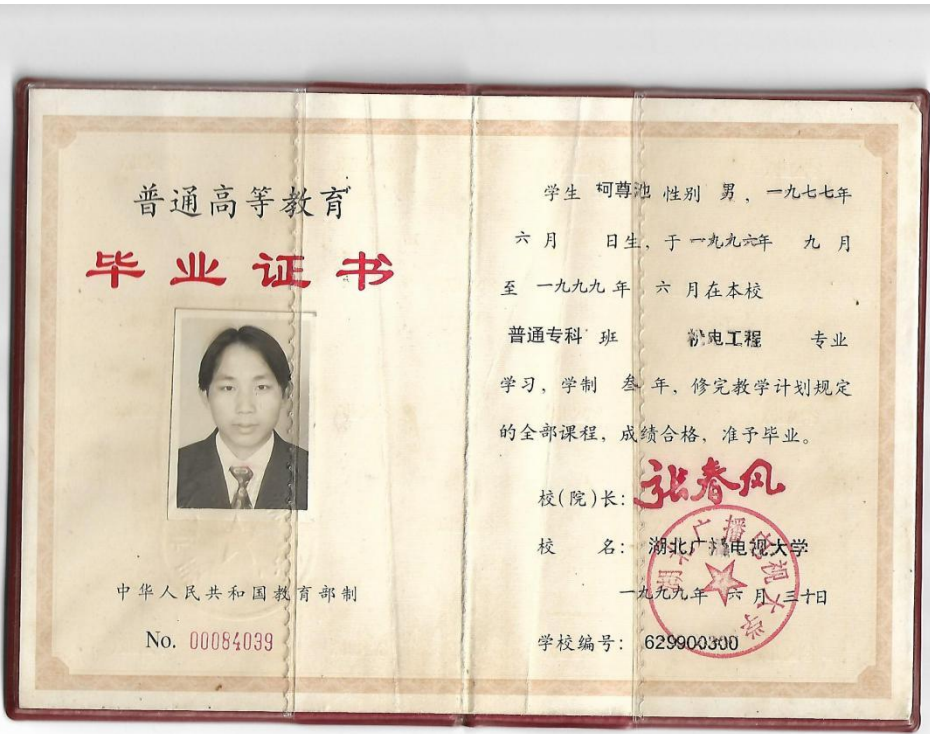 普通高等教育
毕业证书
中华人民共和国教育部制
No. 00084039
学生 柯尊池 性别 男，一九七七年
六月 日生，于一九九六年 九月
至 一九九九年 六 月在本校
普通专科 班 机电工程 专业
学习，学制 叁 年，修完教学计划规定
的全部课程，成绩合格，准予毕业。
校(院)长：张春风
校 名：湖北广播电视大学
一九九九年 六 月 三十日
学校编号：629900300
湖北广播电视大学